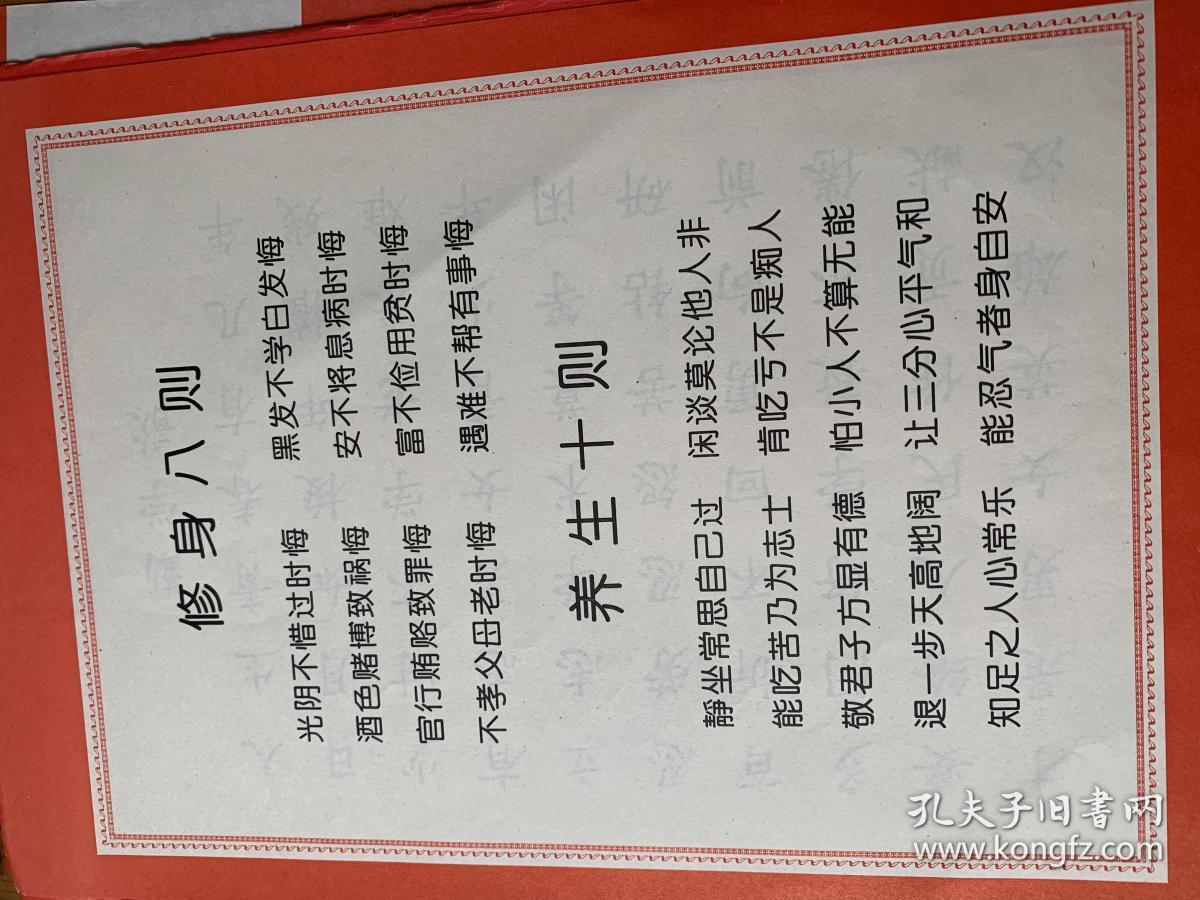 修身八则
光阴不惜过时悔 黑发不学白发悔
酒色赌博致祸悔 安不将息病时悔
官行贿赂致罪悔 富不俭用贫时悔
不孝父母老时悔 遇难不帮有事悔
养生十则
靜坐常思自己过 闲谈莫论他人非
能吃苦乃为志士 肯吃亏不是痴人
敬君子方显有德 怕小人不算无能
退一步天高地阔 让三分心平气和
知足之人心常乐 能忍气者身自安
孔夫子旧书网
www.kongfz.com